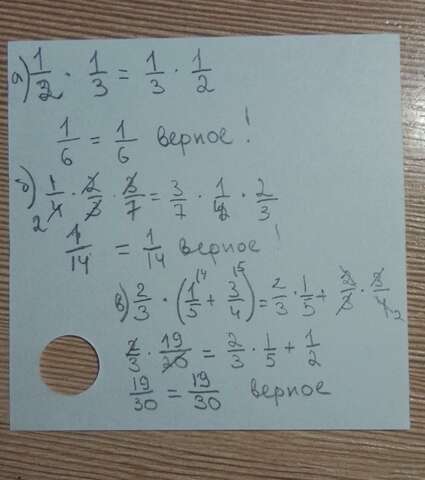 а) 1/2 · 1/3 = 1/3 · 1/2
1/6 = 1/6 верное!
б) 1/4 · 2/3 · 3/7 = 3/7 · 1/4 · 2/3
2
1/14 = 1/14 верное!
в) 2/3 · (1/5 + 3/4) = 2/3 · 1/5 + 2/3 · 3/4
2/3 · 19/20 = 2/3 · 1/5 + 1/2
19/30 = 19/30 верное